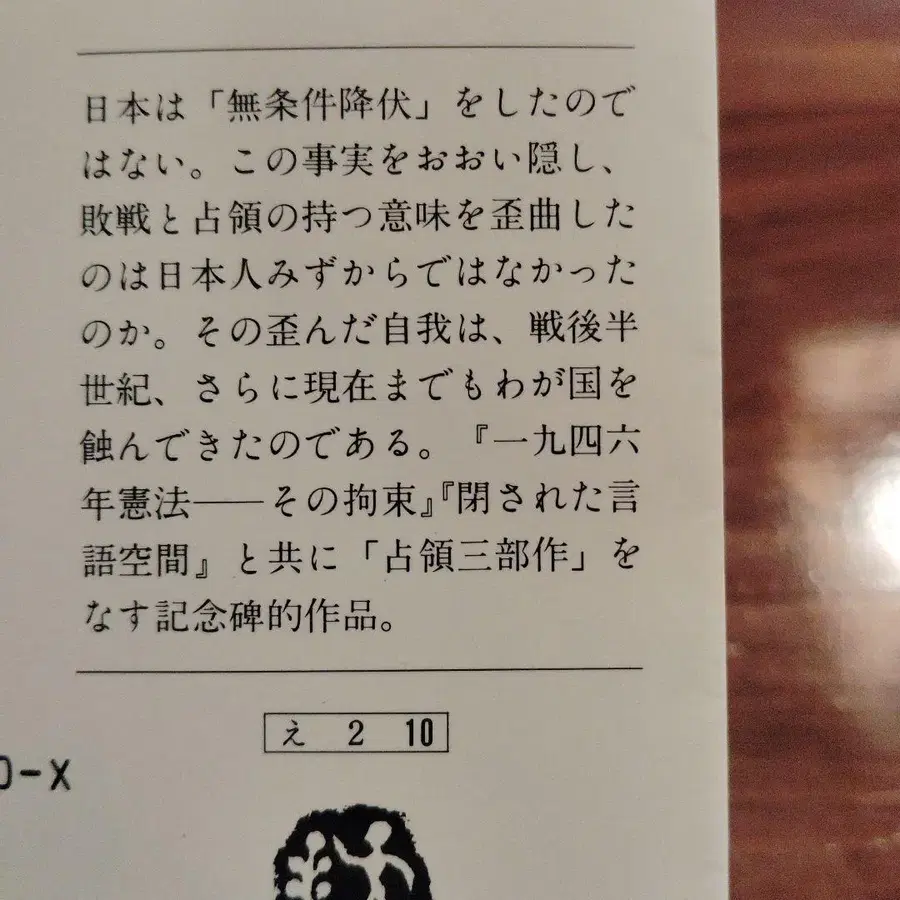 日本は「無条件降伏」をしたので
はない。この事実をおおい隠し、
敗戦と占領の持つ意味を歪曲した
のは日本人みずからではなかった
のか。その歪んだ自我は、戦後半
世紀、さらに現在までもわが国を
蝕んできたのである。『一九四六
年憲法──その拘束』『閉された言
語空間』と共に「占領三部作」を
なす記念碑的作品。
え 2 10
-X